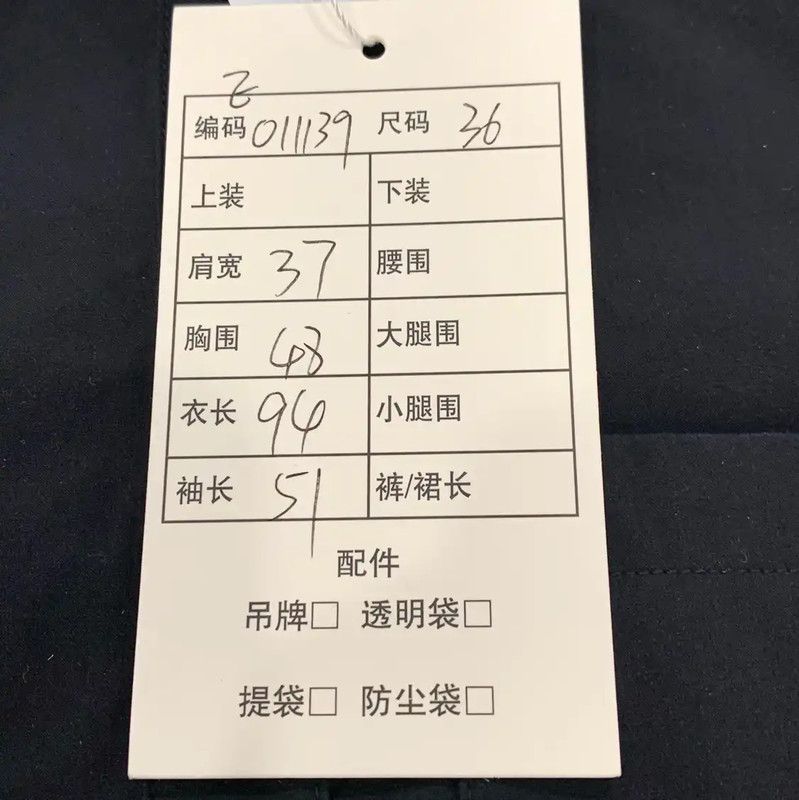 编码 011139 尺码 36
上装 下装
肩宽 37 腰围
胸围 48 大腿围
衣长 94 小腿围
袖长 51 裤/裙长
配件
吊牌□ 透明袋□
提袋□ 防尘袋□